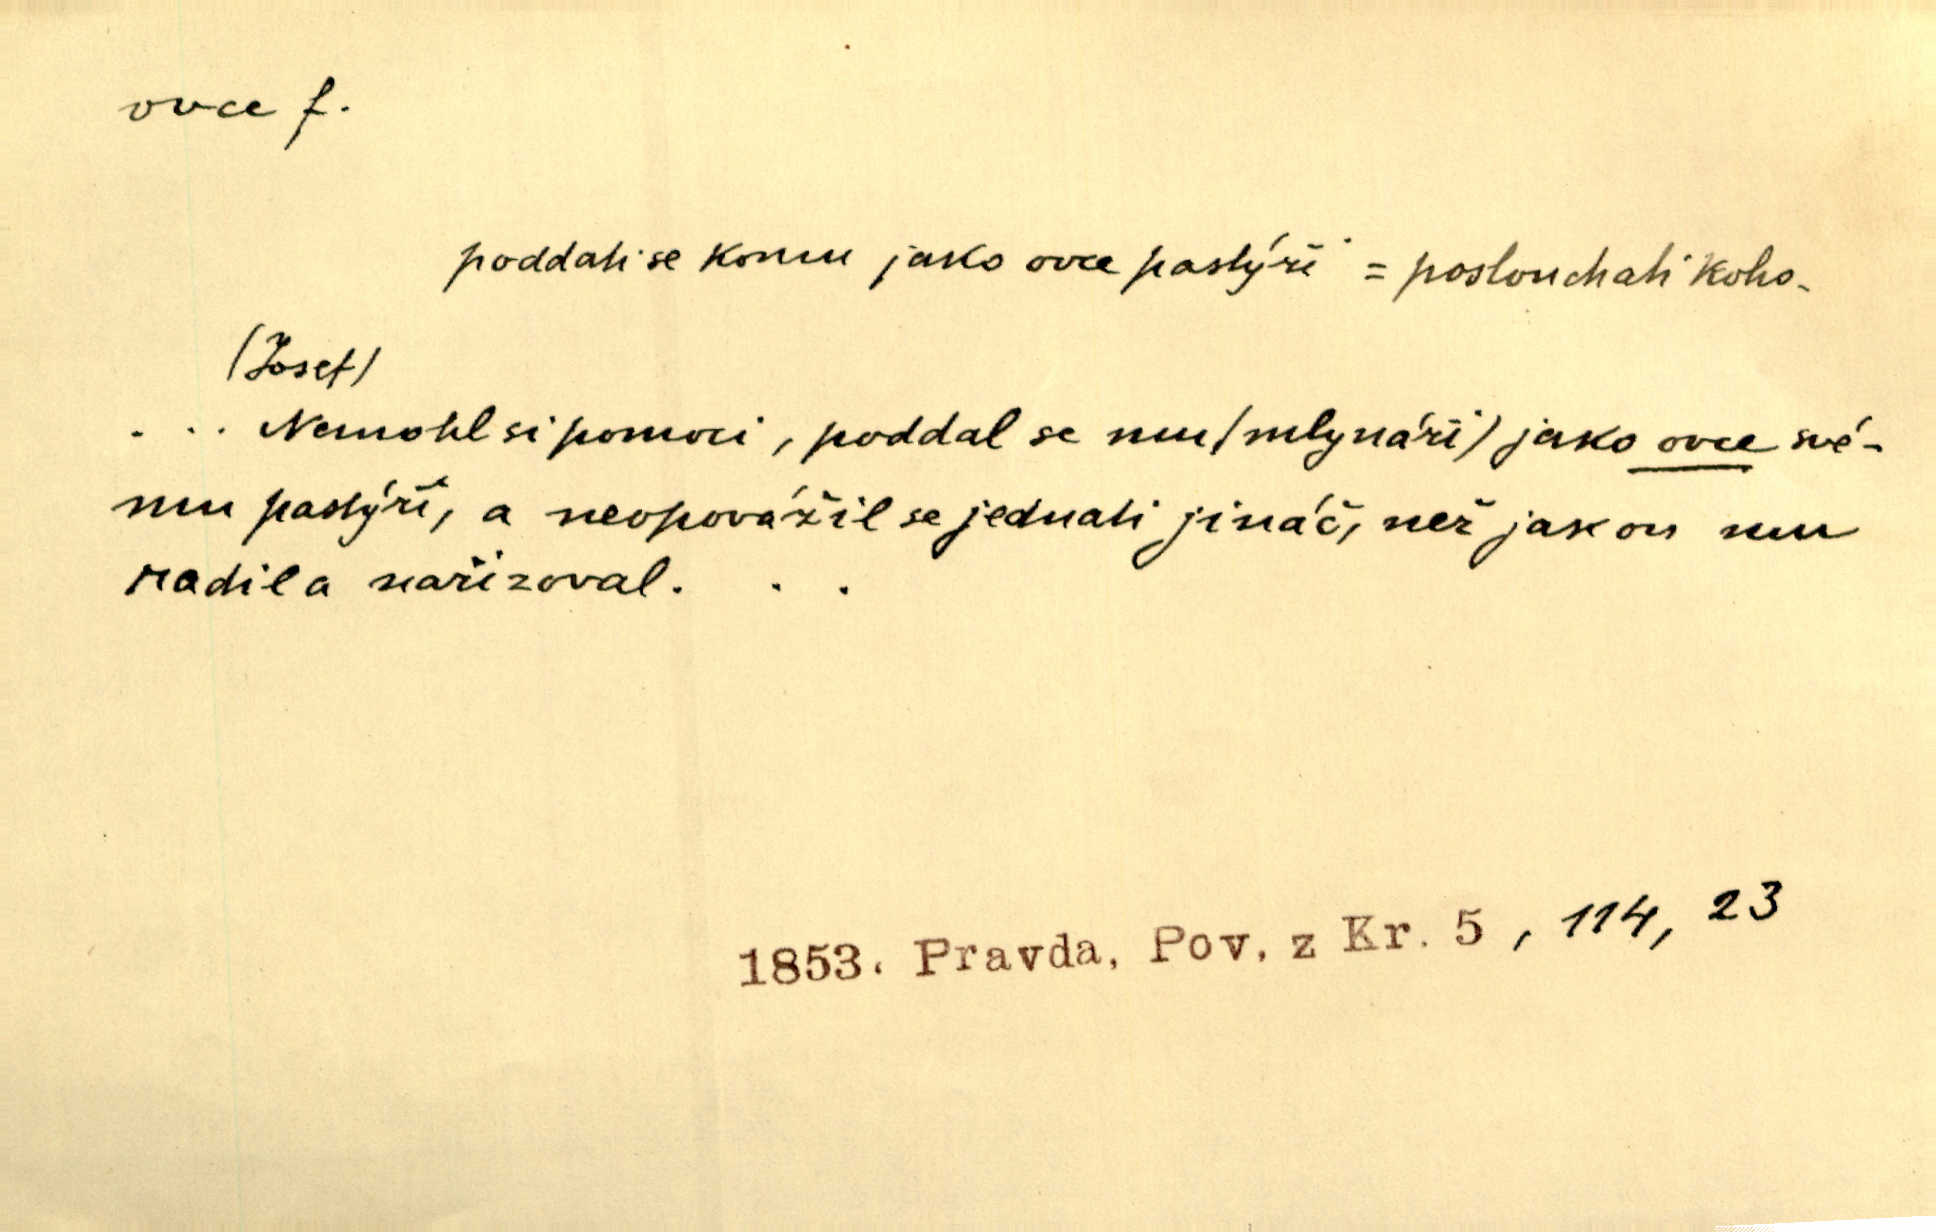 ovce f.
poddati se komu jako ovce pastýři = poslouchati koho.
(Josef)
. . . Nemohl si pomoci, poddal se mu (mlynáři) jako ovce své-
mu pastýři, a neopovážil se jednati jináč, než jak on mu
radil a nařizoval. . .
1853. Pravda, Pov. z Kr. 5, 114, 23